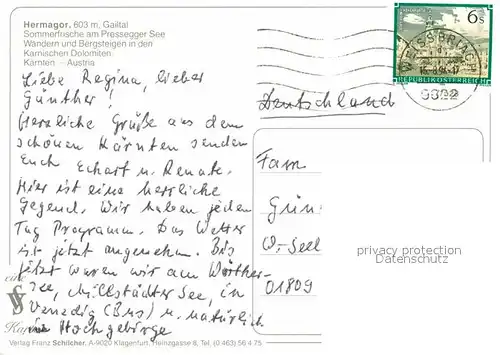 Hermagor. 603 m, Gailtal
Sommerfrische am Pressegger See
Wandern und Bergsteigen in den
Karnischen Dolomiten
Kärnten – Austria
6s
REPUBLIK ÖSTERREICH
Deutschland
Liebe Regina, lieber
Günther!
Herzliche Grüße aus dem
schönen Kärnten senden
Euch Echart u. Renate.
Hier ist eine herrliche
Gegend. Wir haben jeden
Tag Programm. Das Wetter
ist jetzt angenehm. Bis
jetzt waren wir am Wörther-
See, Millstädter See, in
Venedig (Bus) u. natürlich
im Hochgebirge
Fam
Gün
W.-Seel
01809
privacy protection
Datenschutz
eine
Karte
Verlag Franz Schilcher, A-9020 Klagenfurt, Heinzgasse 8, Tel. (0 463) 56 4 75